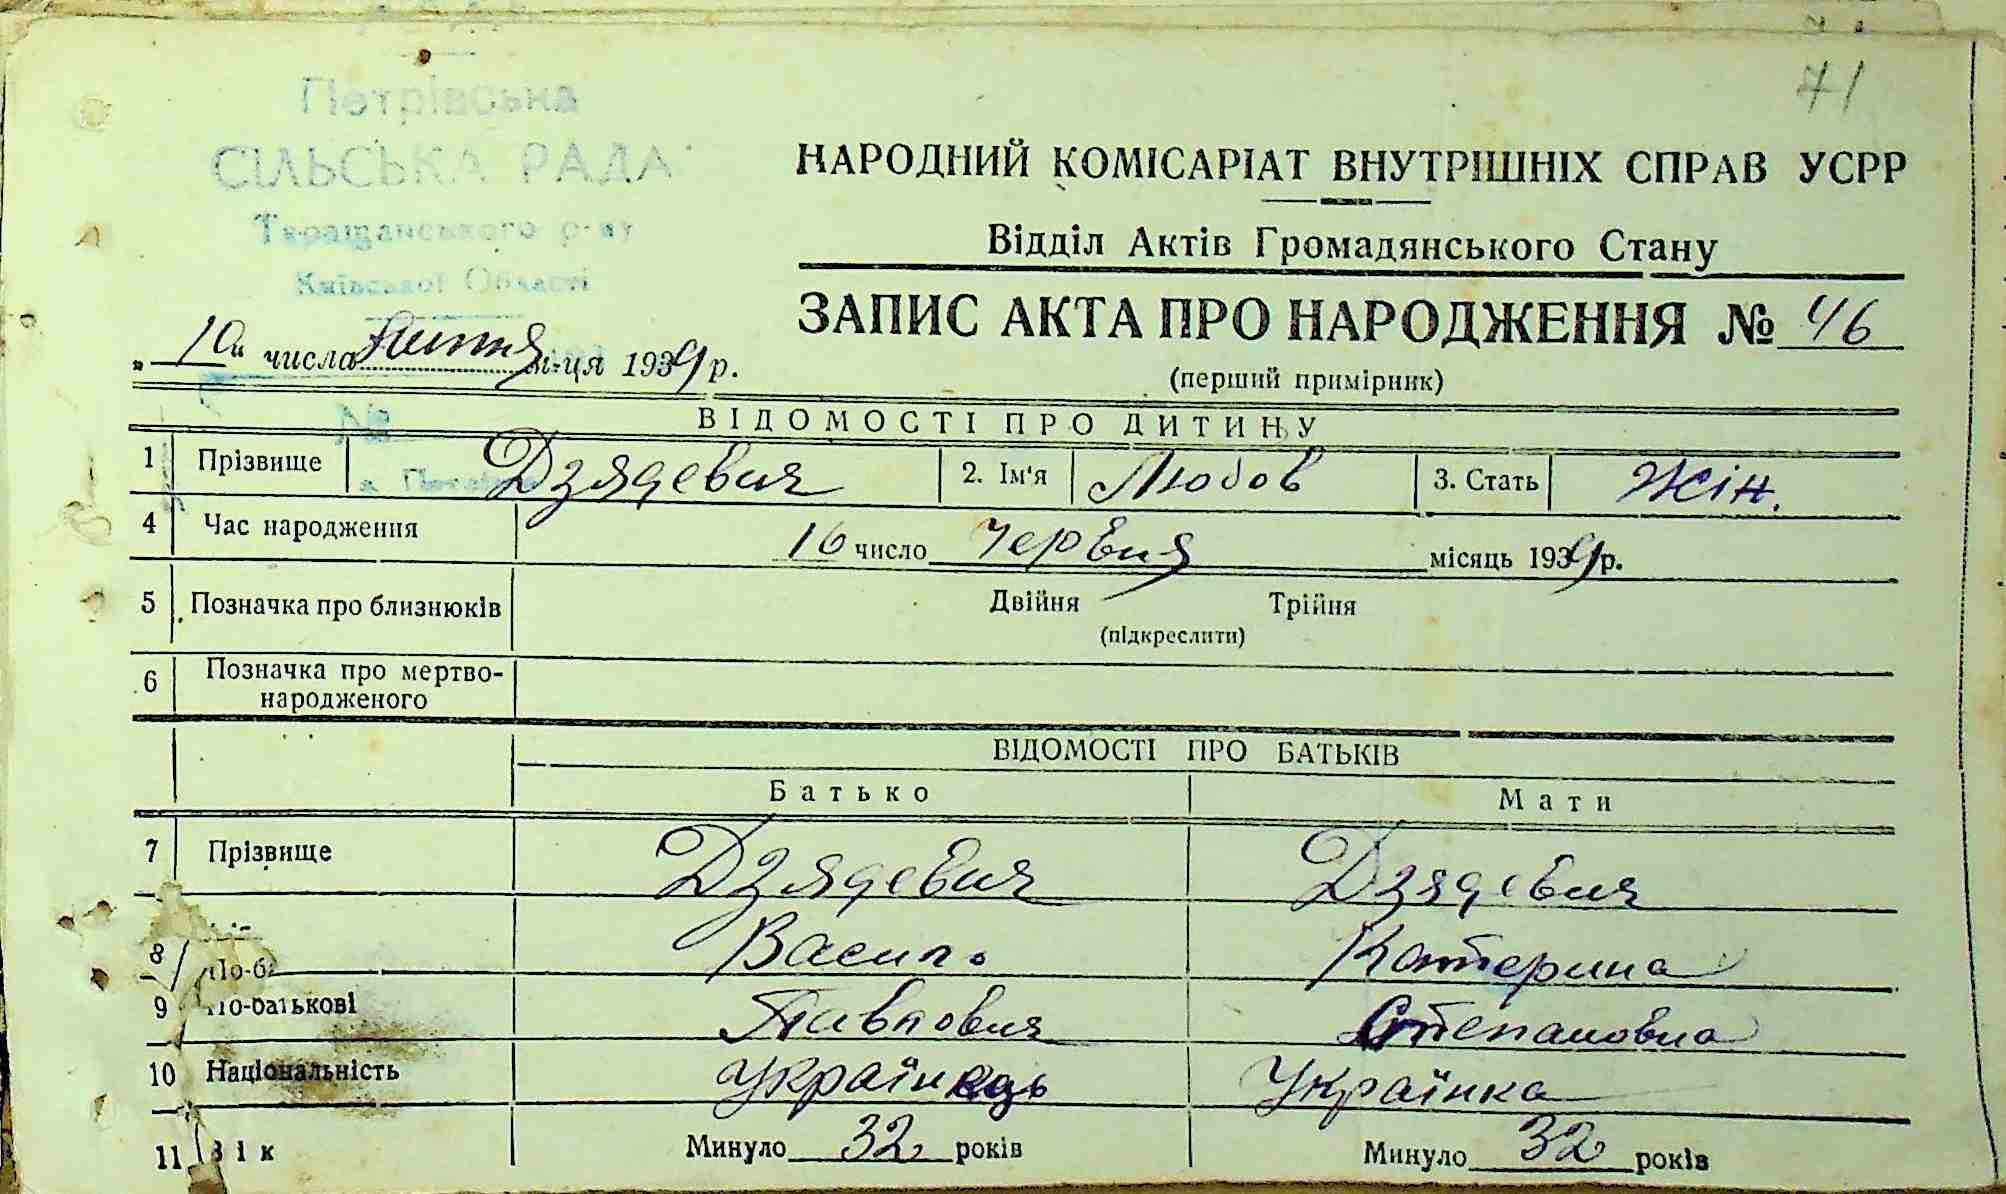 71
Петрівська
СІЛЬСЬКА РАДА
Таращанського р-ну
Київської Області
НАРОДНИЙ КОМІСАРІАТ ВНУТРІШНІХ СПРАВ УСРР
Відділ Актів Громадянського Стану
ЗАПИС АКТА ПРО НАРОДЖЕННЯ № 46
(перший примірник)
„10“ числа Липня м-ця 1939 р.
№
ВІДОМОСТІ ПРО ДИТИНУ
1 Прізвище Дзядевич 2. Ім'я Любов 3. Стать Жін.
4 Час народження 16 число Червня місяць 1939 р.
5 Позначка про близнюків Двійня Трійня
(підкреслити)
6 Позначка про мертво-
народженого
ВІДОМОСТІ ПРО БАТЬКІВ
Батько Мати
7 Прізвище Дзядевич Дзядевич
8 Василь Катерина
9 По-батькові Павлович Степановна
10 Національність Українець Українка
11 Вік Минуло 32 років Минуло 32 років